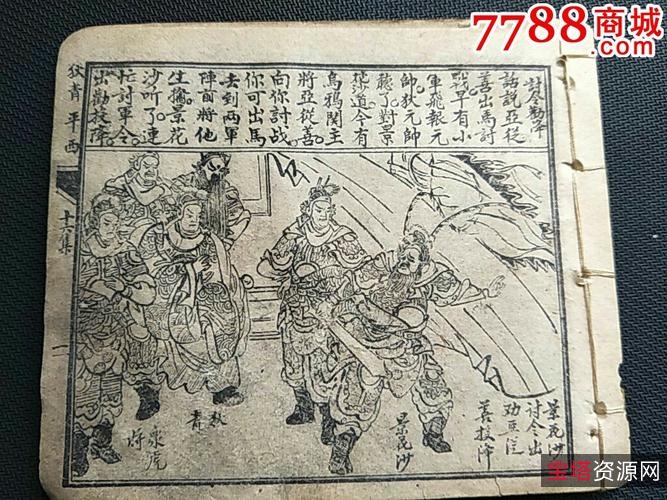 7788商城
討令勸降
話說亞從
善出馬討
戰早有小
軍飛報元
帥狄元帥
聽了對景
沙道今有
烏鴉関主
將亞從善
向你討战
你可出馬
去到兩軍
陣前將他
生擒景花
沙聽了連
忙討軍令
出勸投降
狄青平西
十六集
一
景花沙
討令出
功亞從
善投降
沙
狄青
虎
宝塔资源网